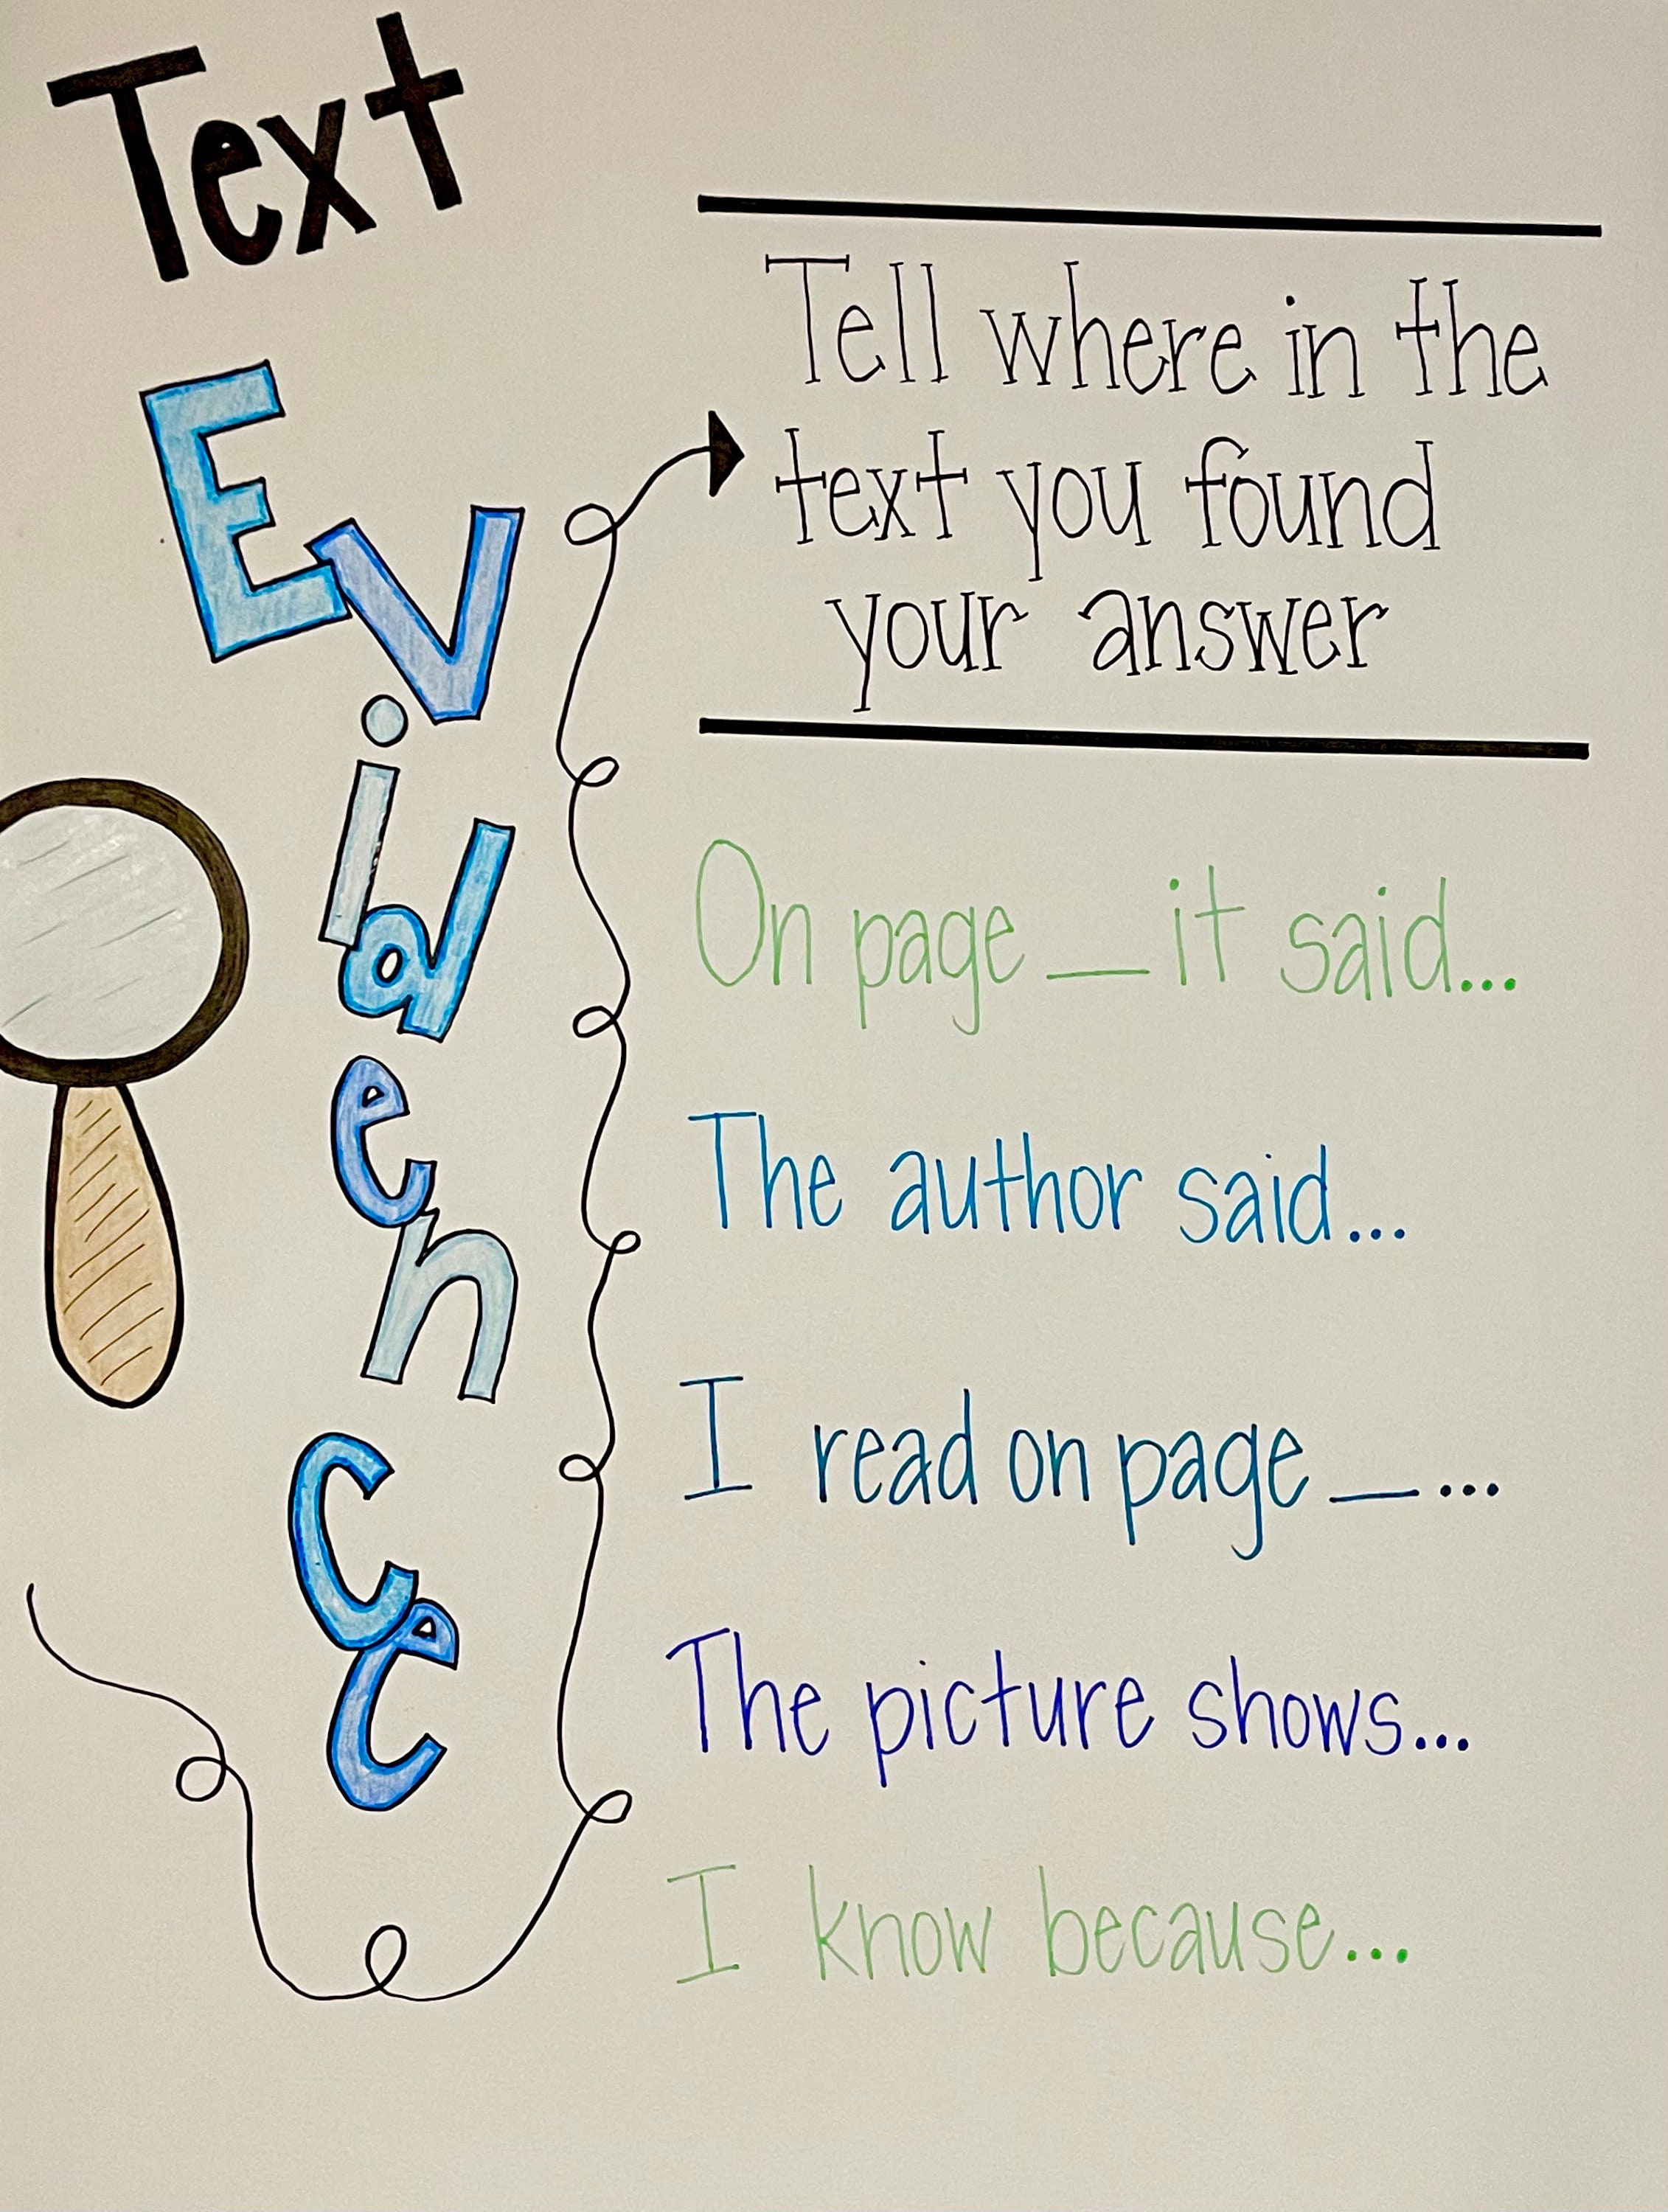 Text
Evidence
Tell where in the
text you found
your answer
On page __ it said...
The author said...
I read on page __...
The picture shows...
I know because...